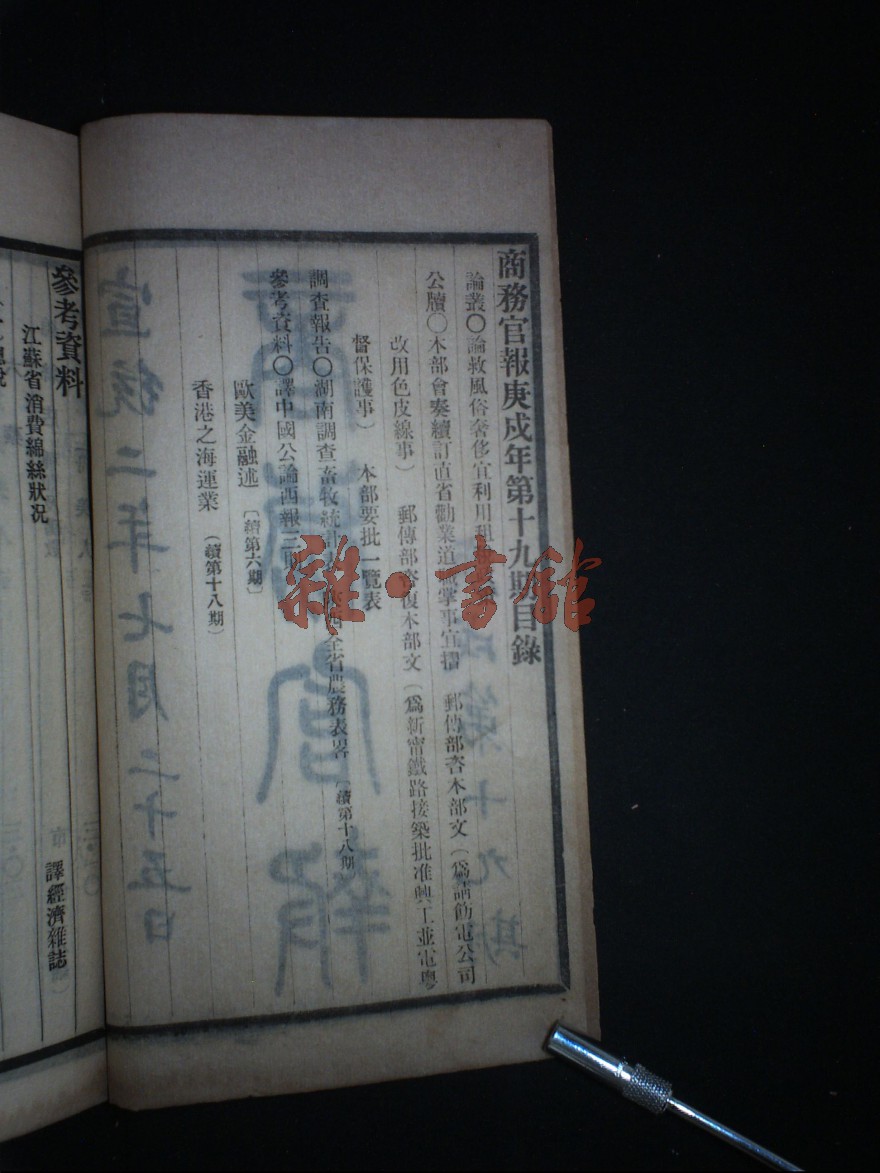 商務官報庚戌年第十九期目錄
論叢〇論救風俗奢侈宜利用租
公牘〇本部會奏續訂直省勸業道職掌事宜摺　郵傳部咨本部文（爲請飭電公司
改用色皮線事）　郵傳部咨復本部文（爲新甯鐵路接築批准興工並電粤
督保護事）　本部要批一覽表
調查報告〇湖南調查畜牧統計　全省農務表畧〔續第十八期〕
參考資料〇譯中國公論西報三
歐美金融述〔續第六期〕
香港之海運業（續第十八期）
宣統二年七月二十五日
商務官報
第十九期
雜·書館
參考資料
江蘇省消費綿絲狀况
譯經濟雜誌